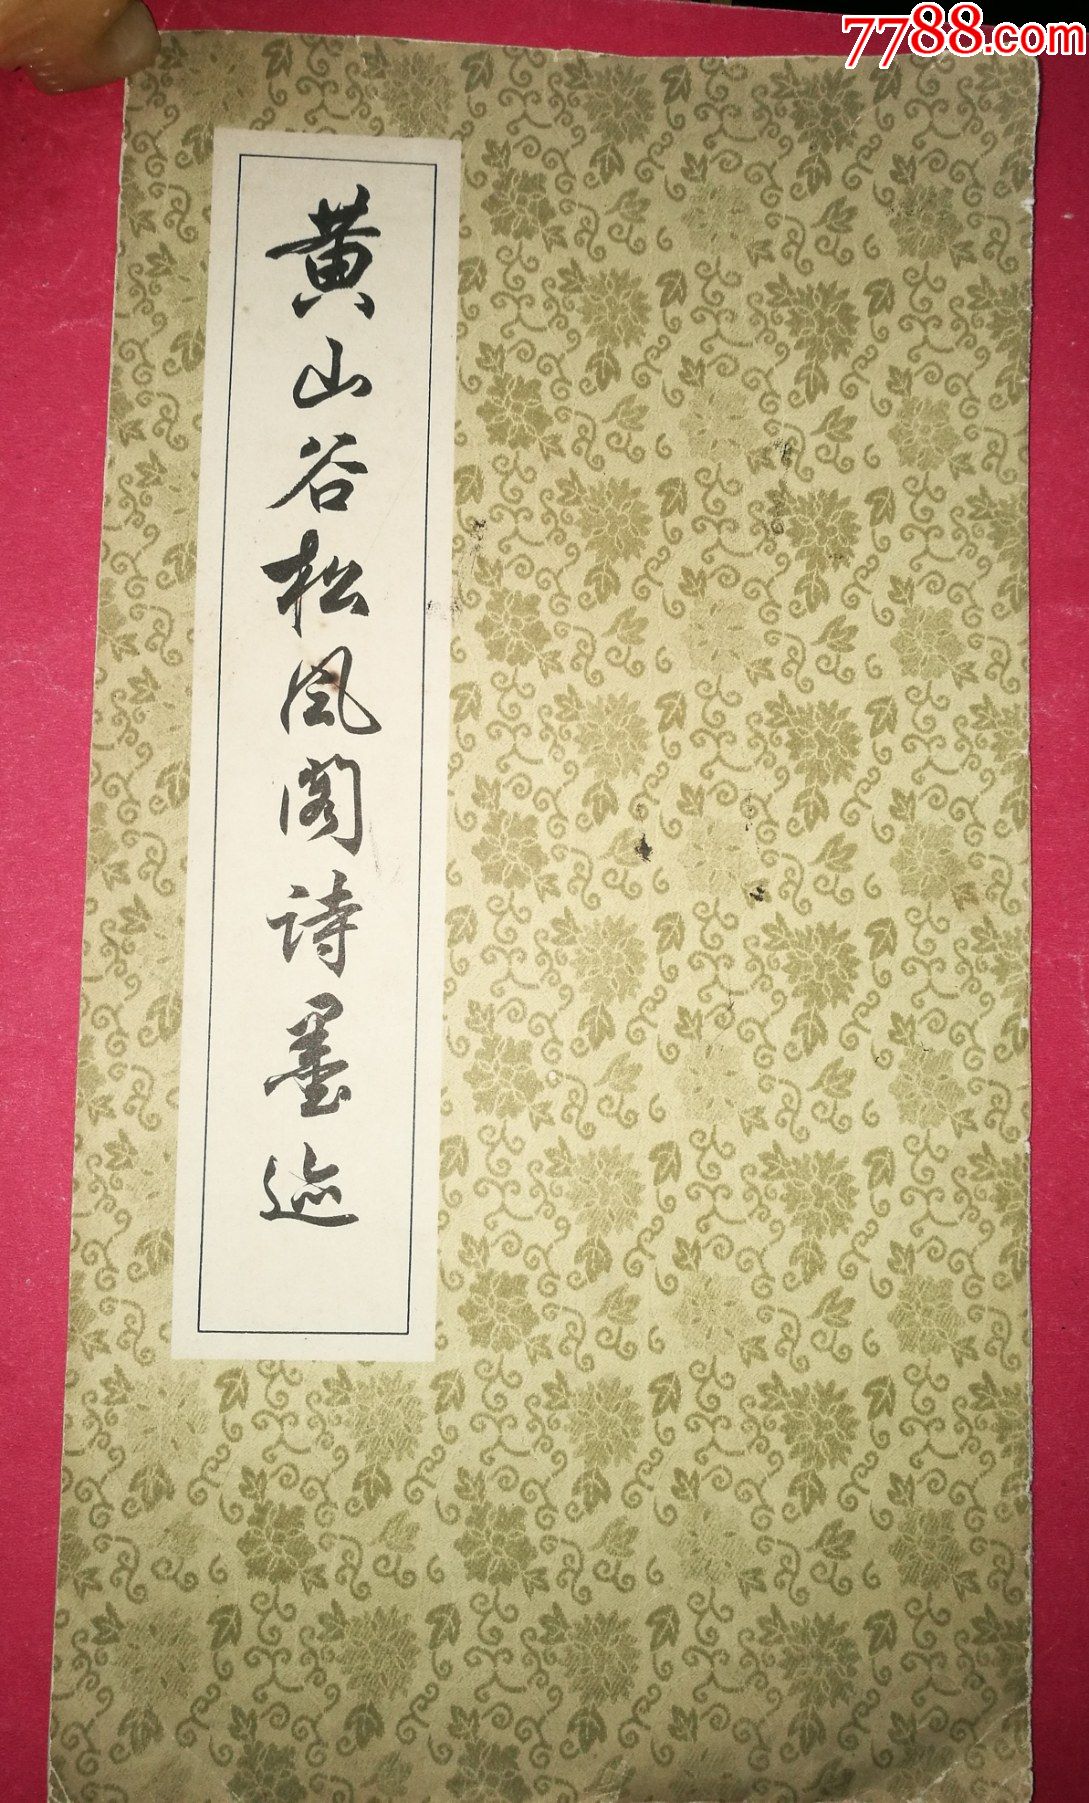 7788.com
黄山谷松风阁诗墨迹